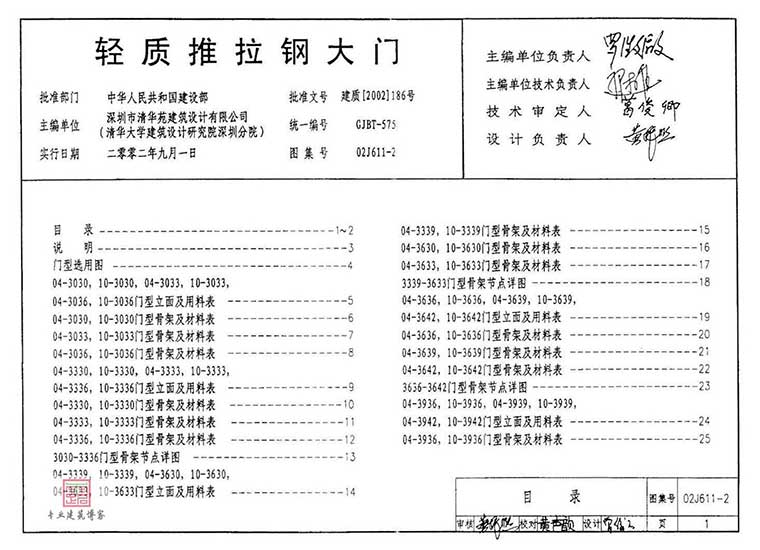 轻质推拉钢大门
批准部门 中华人民共和国建设部 批准文号 建质[2002]186号
主编单位 深圳市清华苑建筑设计有限公司 (清华大学建筑设计研究院深圳分院) 统一编号 GJBT-575
实行日期 二零零二年九月一日 图集号 02J611-2
主编单位负责人
主编单位技术负责人
技术审定人
设计负责人
目 录 1~2
说 明 3
门型选用图 4
04-3030, 10-3030, 04-3033, 10-3033,
04-3036, 10-3036门型立面及用料表 5
04-3030, 10-3030门型骨架及材料表 6
04-3033, 10-3033门型骨架及材料表 7
04-3036, 10-3036门型骨架及材料表 8
04-3330, 10-3330, 04-3333, 10-3333,
04-3336, 10-3336门型立面及用料表 9
04-3330, 10-3330门型骨架及材料表 10
04-3333, 10-3333门型骨架及材料表 11
04-3336, 10-3336门型骨架及材料表 12
3030-3336门型骨架节点详图 13
04-3339, 10-3339, 04-3630, 10-3630,
10-3633门型立面及用料表 14
专业建筑博客
04-3339, 10-3339门型骨架及材料表 15
04-3630, 10-3630门型骨架及材料表 16
04-3633, 10-3633门型骨架及材料表 17
3339-3633门型骨架节点详图 18
04-3636, 10-3636, 04-3639, 10-3639,
04-3642, 10-3642门型立面及用料表 19
04-3636, 10-3636门型骨架及材料表 20
04-3639, 10-3639门型骨架及材料表 21
04-3642, 10-3642门型骨架及材料表 22
3636-3642门型骨架节点详图 23
04-3936, 10-3936, 04-3939, 10-3939,
04-3942, 10-3942门型立面及用料表 24
04-3936, 10-3936门型骨架及材料表 25
目 录 图集号 02J611-2
审核 校对 设计 页 1